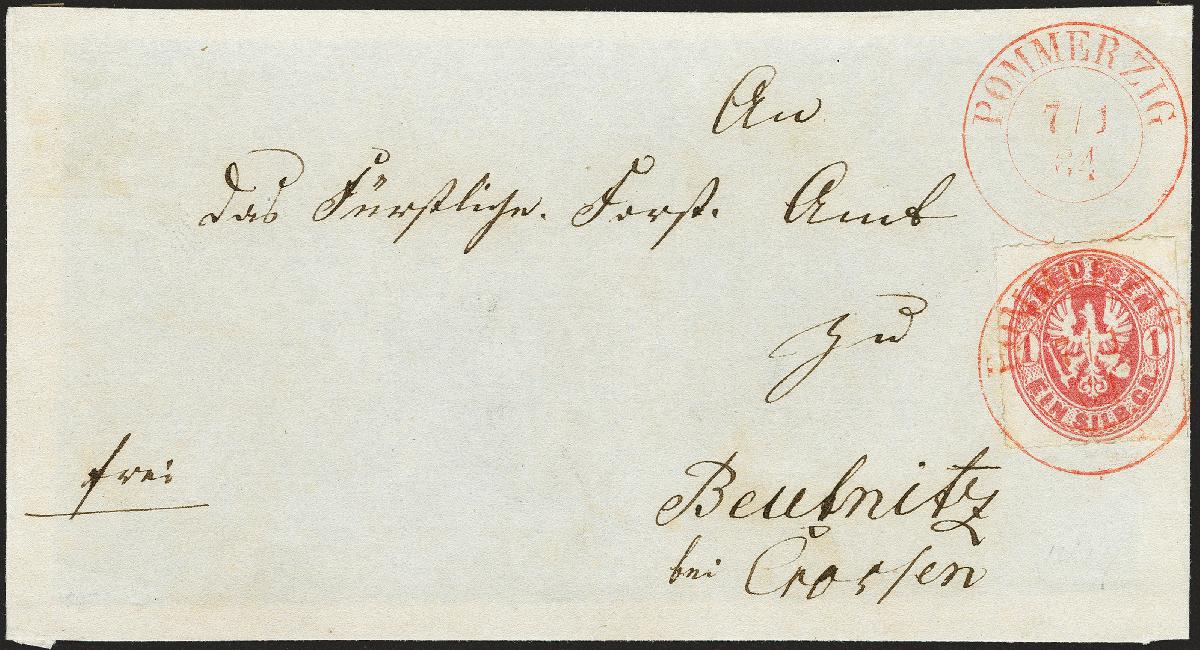 POMMERZIG
7/1
64
An
das Fürstliche. Forst. Amt
zu
PREUSSEN
1 1
EIN SILB. GR.
frei
Beutnitz
bei Crossen